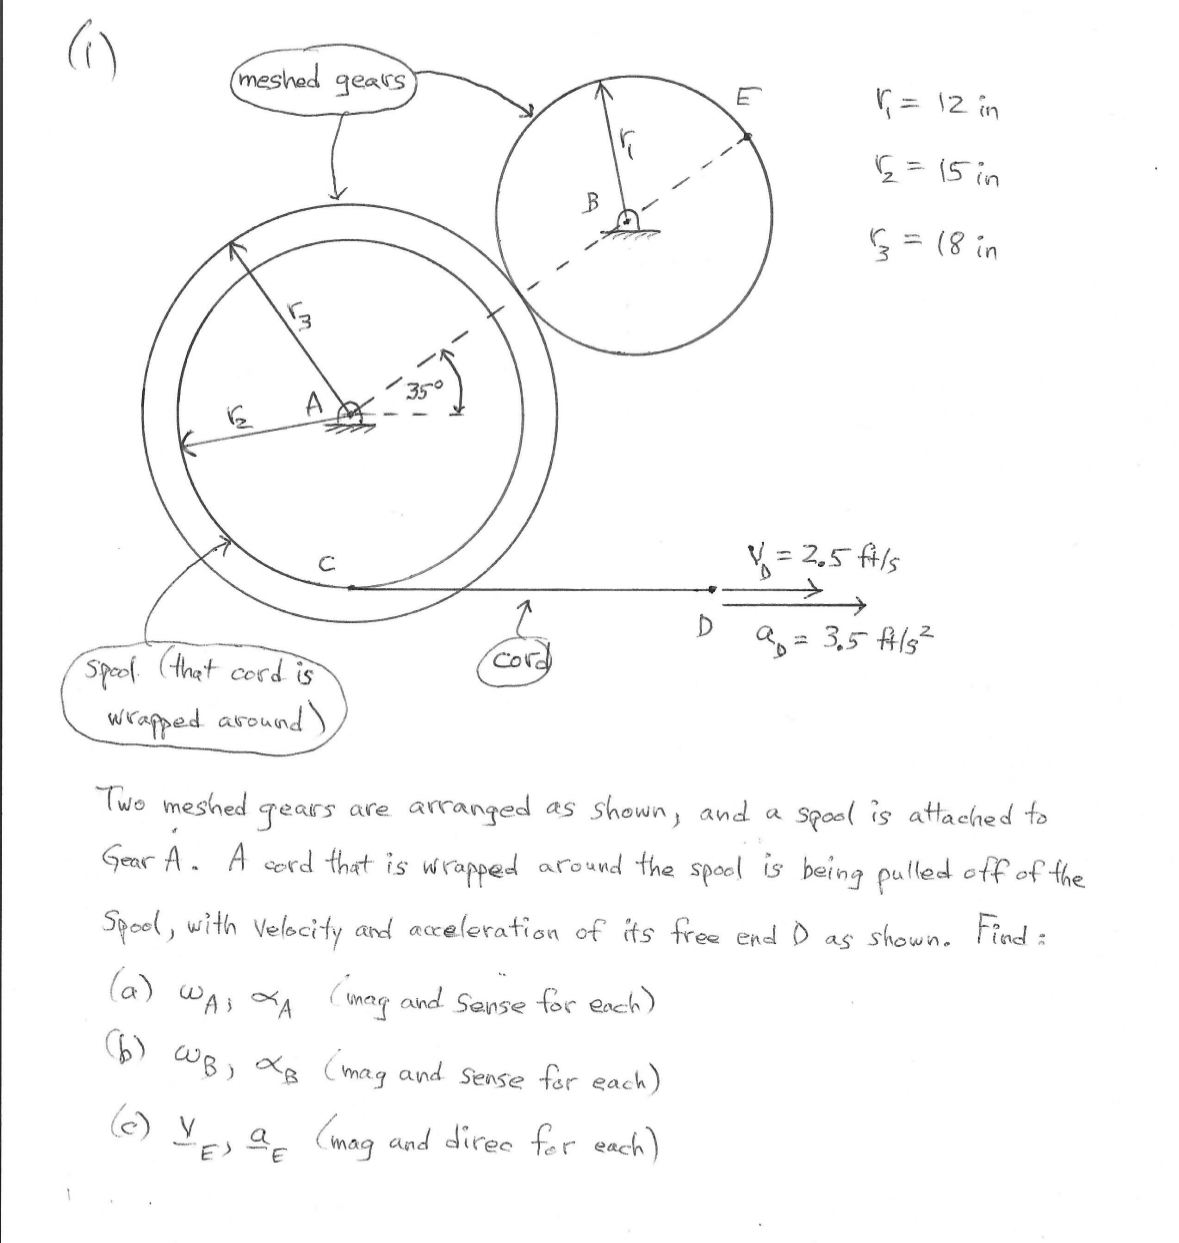 (1)
meshed gears
E
r₁ = 12 in
r₁
r₂ = 15 in
B
r₃ = 18 in
r₃
35°
A
r₂
C
V_D = 2.5 ft/s
D
a_D = 3.5 ft/s²
cord
Spool (that cord is
wrapped around)
Two meshed gears are arranged as shown, and a spool is attached to
Gear A. A cord that is wrapped around the spool is being pulled off of the
Spool, with velocity and acceleration of its free end D as shown. Find:
(a) ω_A, α_A (mag and sense for each)
(b) ω_B, α_B (mag and sense for each)
(c) V_E, a_E (mag and direc for each)